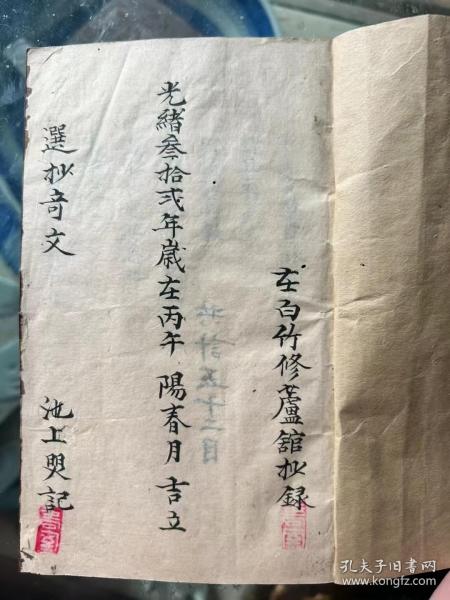 在白竹修蘆舘抄録
光緒叁拾弍年嵗在丙午 陽春月吉立
選抄奇文 池上㷠記
共計五十二目
孔夫子旧书网
www.kongfz.com